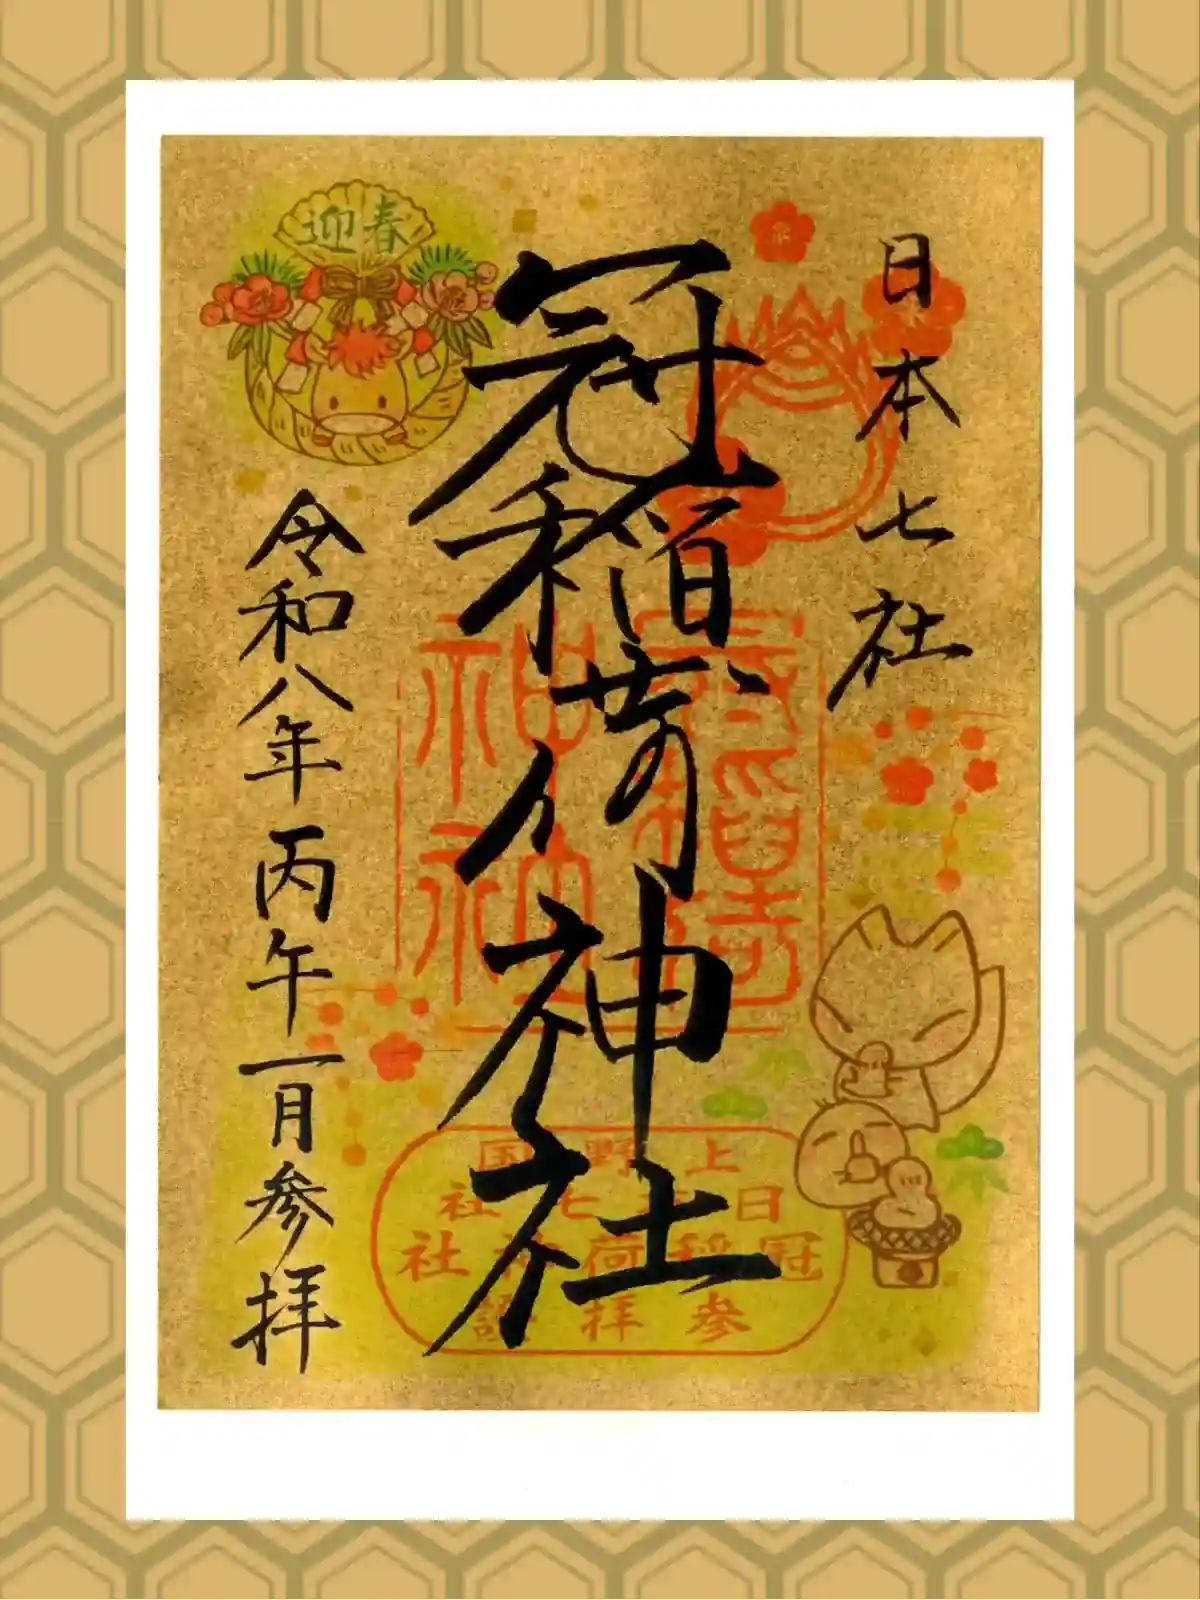 日本七社
冠稲荷神社
迎春
令和八年 丙午 一月参拝
冠稲荷
神社
上野国
日本七社
冠稲荷神社
参拝証